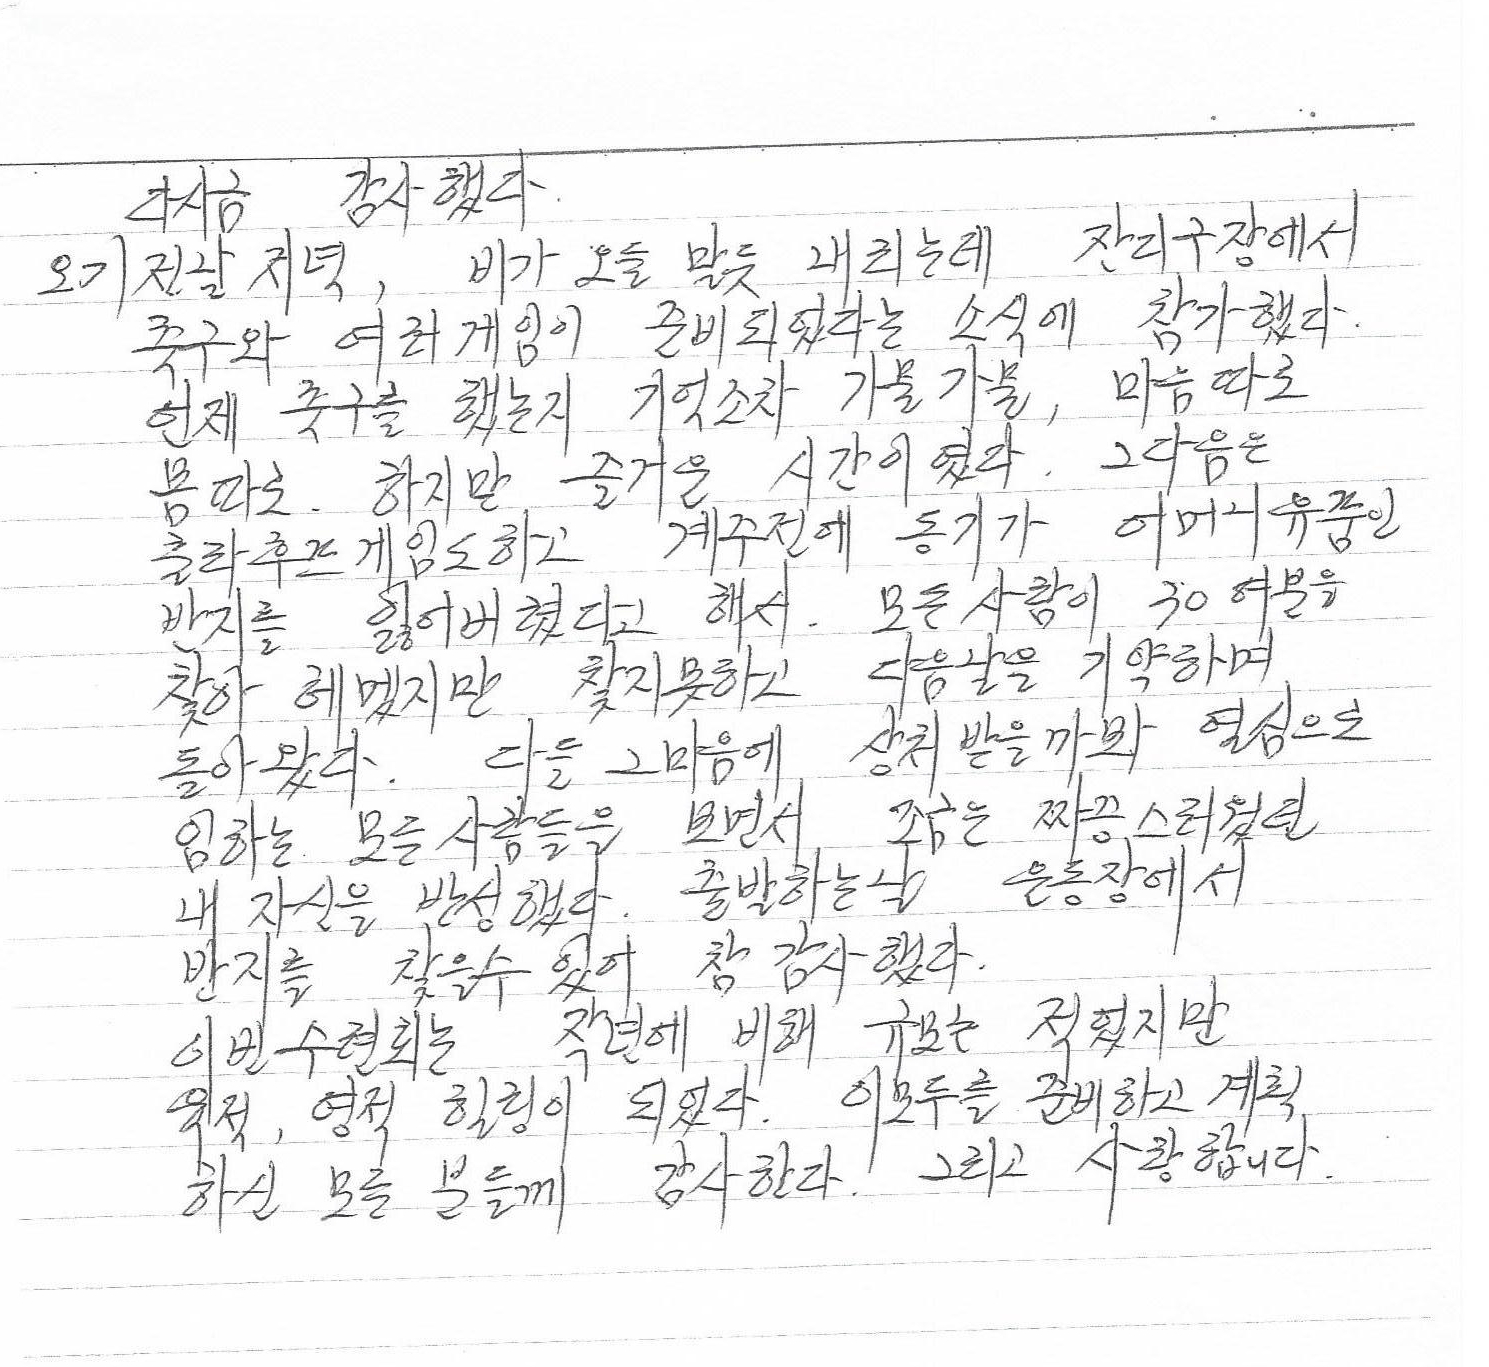 다시금 감사했다.
오기 전날 저녁, 비가 오들 말듯 내리는데 잔디구장에서
축구와 여러게임이 준비되었다는 소식에 참가했다.
언제 축구를 했는지 기억조차 가물가물, 마음따로
몸따로. 하지만 즐거운 시간이였다. 그다음은
훌라후프게임도하고 계주전에 동기가 어머니유품인
반지를 잃어버렸다고 해서. 모든사람이 30여분을
찾아 헤멨지만 찾지못하고 다음날을 기약하며
돌아왔다. 다들 그마음에 상처받을까봐 열심으로
임하는 모든사람들을 보면서 조금은 짜증스러웠던
내 자신을 반성했다. 출발하는날 운동장에서
반지를 찾을수 있어 참 감사했다.
이번수련회는 작년에 비해 규모는 적었지만
육적, 영적 힐링이 되었다. 이모두를 준비하고 계획
하신 모든 분들께 감사한다. 그리고 사랑합니다.